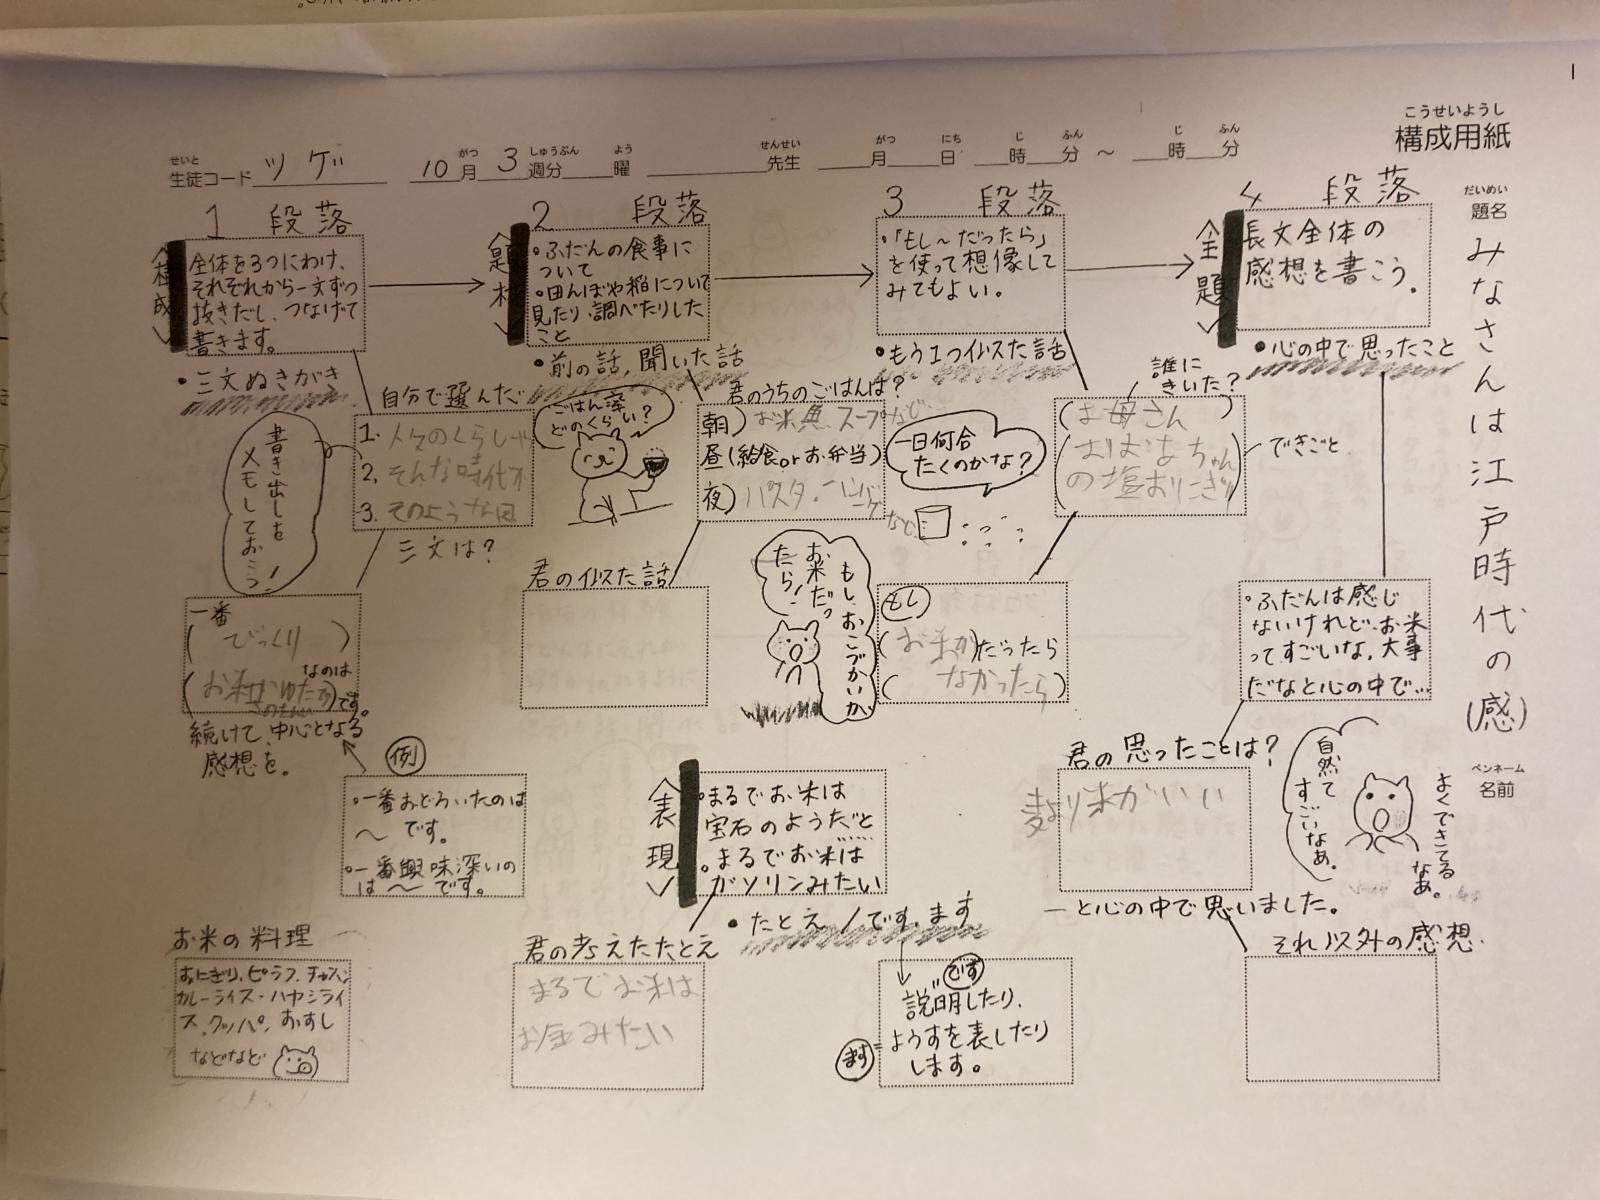 1
こうせいようし
構成用紙
せいと
生徒コード ツゲ
がつ しゅうぶん よう
10月 3週分 曜
せんせい
先生
がつ にち じ ふん じ ふん
月 日 時 分 ~ 時 分
だいめい
題名
みなさんは江戸時代の(感)
ペンネーム
名前
1 段落
<構成>
全体を3つにわけ、
それぞれから一文ずつ
抜きだし、つなげて
書きます。
・三文ぬきがき
自分で選んだ
1. 人々のくらしや
2. そんな時代が
3. そのような
三文は?
書き出しを
メモしておこう!
一番
(びっくり)
なのは
(お米がゆたか)です。
続けて、中心となる
感想を。
例
・一番おどろいたのは
〜です。
・一番興味深いの
は〜です。
お米の料理
おにぎり、ピラフ、チャーハン
カレーライス・ハヤシライ
ス、クッパ、おすし
などなど
2 段落
<題材>
・ふだんの食事に
ついて
・田んぼや稲について
見たり、調べたりした
こと
・前の話,聞いた話
ごはん
どのくらい?
君のうちのごはんは?
朝) お米 魚 スープなど
昼(給食orお弁当)
夜) パスタ・
など
君の似た話
<表現>
・まるでお米は
宝石のようだと
・まるでお米は
ガソリンみたい
・たとえ/です、ます
君の考えたたとえ
まるでお米は
お金みたい
です
説明したり、
ます=ようすを表したり
します。
3 段落
・「もし~だったら」
を使って想像して
みてもよい。
・もう1つ似た話
一日何合
たくのかな?
誰に
きいた?
(お母さん)
(おばあちゃん
の塩おにぎり)
できごと
もし、おこづかいが
お米だっ
たら!
もし
(お米が)だったら
(なかったら)
4 段落
<全題>
長文全体の
感想を書こう。
・心の中で思ったこと
・ふだんは感じ
ないけれど、お米
ってすごいな,大事
だなと心の中で…
君の思ったことは?
麦より米がいい
―と心の中で思いました。
自然て
すごいなぁ。
よくできてる
なぁ。
それ以外の感想